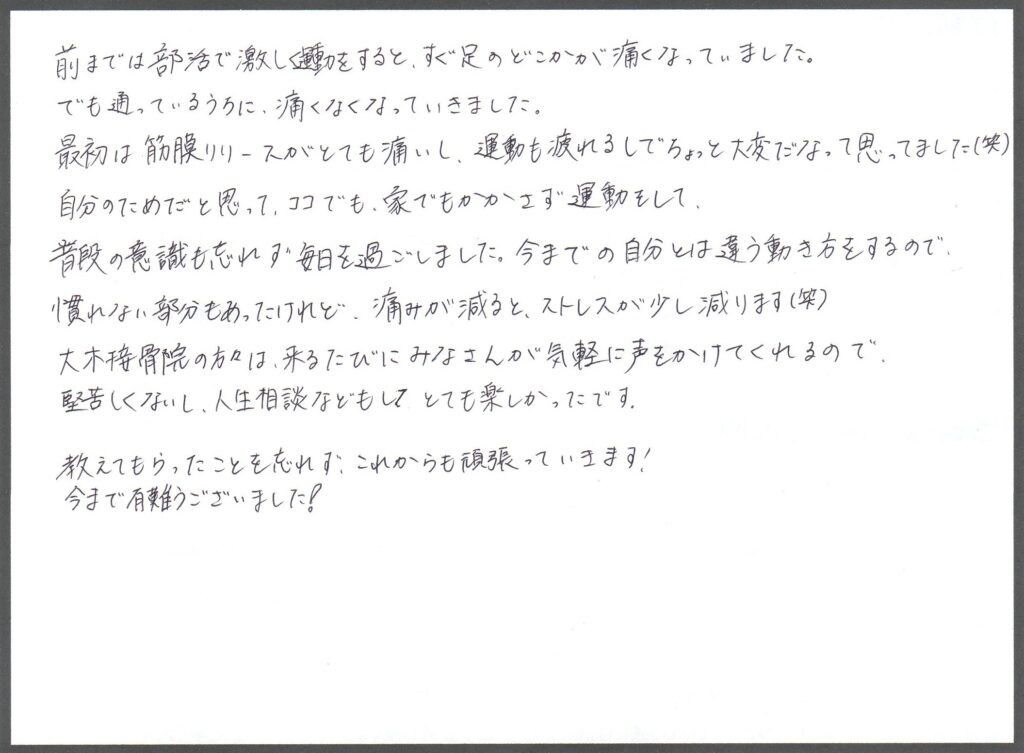 前までは部活で激しく運動をすると、すぐ足のどこかが痛くなっていました。
でも通っているうちに、痛くなくなっていきました。
最初は筋膜リリースがとても痛いし、運動も疲れるしでちょっと大変だなって思ってました(笑)
自分のためだと思って、ココでも、家でもかかさず運動をして、
普段の意識も忘れず毎日を過ごしました。今までの自分とは違う動き方をするので、
慣れない部分もあったけれど、痛みが減ると、ストレスが少し減ります(笑)
大木接骨院の方々は、来るたびにみなさんが気軽に声をかけてくれるので、
堅苦しくないし、人生相談などもして とても楽しかったです。
教えてもらったことを忘れず、これからも頑張っていきます!
今まで有難うございました!